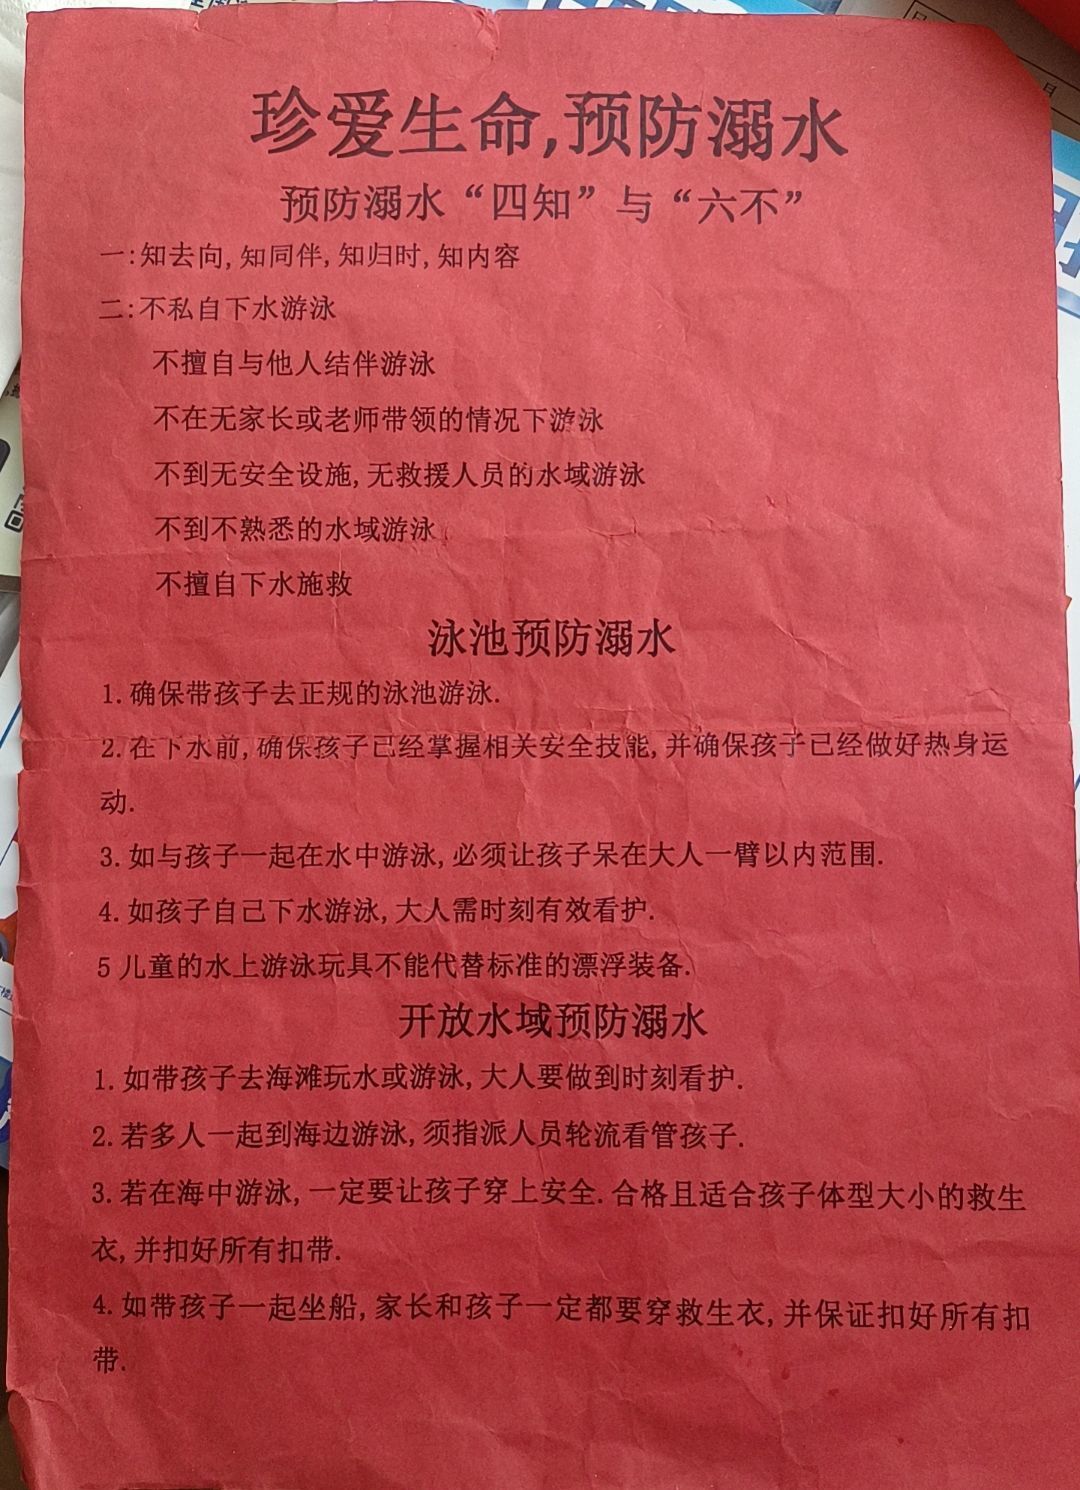 珍爱生命,预防溺水
预防溺水“四知”与“六不”
一:知去向,知同伴,知归时,知内容
二:不私自下水游泳
不擅自与他人结伴游泳
不在无家长或老师带领的情况下游泳
不到无安全设施,无救援人员的水域游泳
不到不熟悉的水域游泳
不擅自下水施救
泳池预防溺水
1.确保带孩子去正规的泳池游泳.
2.在下水前,确保孩子已经掌握相关安全技能,并确保孩子已经做好热身运
动.
3.如与孩子一起在水中游泳,必须让孩子呆在大人一臂以内范围.
4.如孩子自己下水游泳,大人需时刻有效看护.
5儿童的水上游泳玩具不能代替标准的漂浮装备.
开放水域预防溺水
1.如带孩子去海滩玩水或游泳,大人要做到时刻看护.
2.若多人一起到海边游泳,须指派人员轮流看管孩子.
3.若在海中游泳,一定要让孩子穿上安全.合格且适合孩子体型大小的救生
衣,并扣好所有扣带.
4.如带孩子一起坐船,家长和孩子一定都要穿救生衣,并保证扣好所有扣
带.